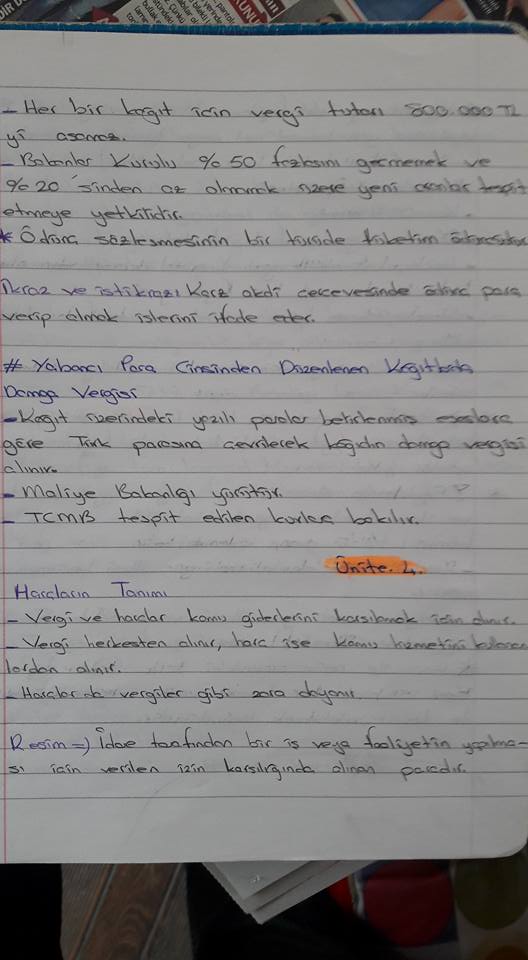 - Her bir kağıt için vergi tutarı 800.000 TL
yi aşamaz.
- Bakanlar Kurulu %50 fazlasını geçmemek ve
%20'sinden az olmamak üzere yeni oranlar tespit
etmeye yetkilidir.
* Ödünç sözleşmesinin bir türüde tüketim
İkraz ve istikraz: Karz akdi çerçevesinde ödünç para
verip almak işlerini ifade eder.
# Yabancı Para Cinsinden Düzenlenen Kağıtlarda
Damga Vergisi
- Kağıt üzerindeki yazılı paralar belirlenmiş esaslara
göre Türk parasına çevrilerek kağıdın damga vergisi
alınır.
- Maliye Bakanlığı yürütür.
- TCMB tespit edilen kurlara bakılır.
Ünite. 4.
Harçların Tanımı
- Vergi ve harçlar kamu giderlerini karşılamak için alınır.
- Vergi herkesten alınır, harç ise kamu hizmetini kullanan
lardan alınır.
- Harçlar da vergiler gibi zora dayanır.
Resim => İdare tarafından bir iş veya faaliyetin yapılma-
sı için verilen izin karşılığında alınan paradır.